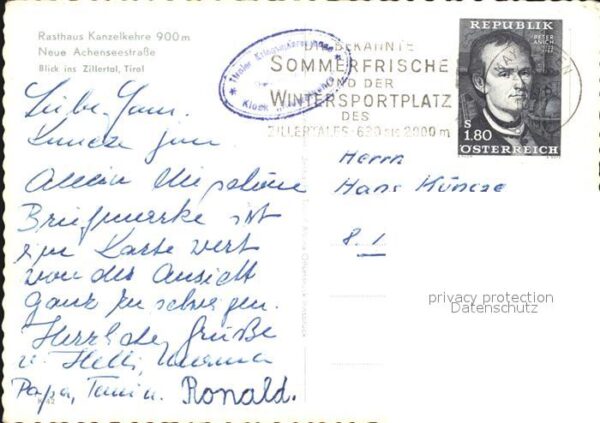 Rasthaus Kanzelkehre 900 m
Neue Achenseestraße
Blick ins Zillertal, Tirol
BEKANNTE
SOMMERFRISCHE
UND DER
WINTERSPORTPLATZ
DES
ZILLERTALES·630 bis 2000 m
REPUBLIK
PETER
ANICH
S
1.80
ÖSTERREICH
Liebe
Allein die schöne
Briefmarke ist
eine Karte wert
von der Ansicht
ganz zu schweigen.
Herzliche Grüße
v. Helli, Mama
Papa, Ronald.
Herrn
Hans
8. 1.
privacy protection
Datenschutz